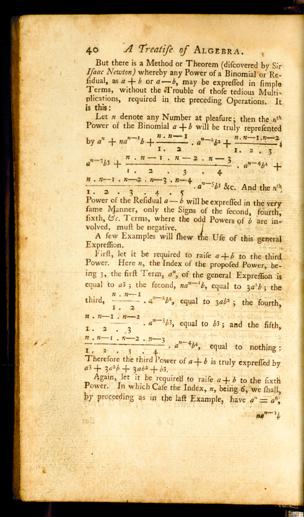 40 A Treatise of ALGEBRA.
But there is a Method or Theorem (discovered by Sir
Isaac Newton) whereby any Power of a Binomial or Re-
sidual, as a + b or a — b, may be expressed in simple
Terms, without the Trouble of those tedious Multi-
plications, required in the preceding Operations. It
is this:
Let n denote any Number at pleasure; then the nth
Power of the Binomial a + b will be truly represented
by aⁿ + naⁿ⁻¹b + n.n—1/1.2 . aⁿ⁻²b² + n.n—1.n—2/1.2.3 .
aⁿ⁻³b³ + n.n—1.n—2.n—3/1.2.3.4 . aⁿ⁻⁴b⁴ +
n.n—1.n—2.n—3.n—4/1.2.3.4.5 . aⁿ⁻⁵b⁵ &c. And the nth
Power of the Residual a — b will be expressed in the very
same Manner, only the Signs of the second, fourth,
sixth, &c. Terms, where the odd Powers of b are in-
volved, must be negative.
A few Examples will shew the Use of this general
Expression.
First, let it be required to raise a + b to the third
Power. Here n, the Index of the proposed Power, be-
ing 3, the first Term, aⁿ, of the general Expression is
equal to a³; the second, naⁿ⁻¹b, equal to 3a²b; the
third, n.n—1/1.2 . aⁿ⁻²b², equal to 3ab²; the fourth,
n.n—1.n—2/1.2.3 . aⁿ⁻³b³, equal to b³; and the fifth,
n.n—1.n—2.n—3/1.2.3.4 . aⁿ⁻⁴b⁴, equal to nothing:
Therefore the third Power of a + b is truly expressed by
a³ + 3a²b + 3ab² + b³.
Again, let it be required to raise a + b to the sixth
Power. In which Case the Index, n, being 6, we shall,
by proceeding as in the last Example, have aⁿ = a⁶,
naⁿ⁻¹b